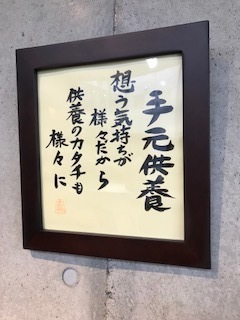 手元供養
想う気持ちが
様々だから
供養のカタチも
様々に